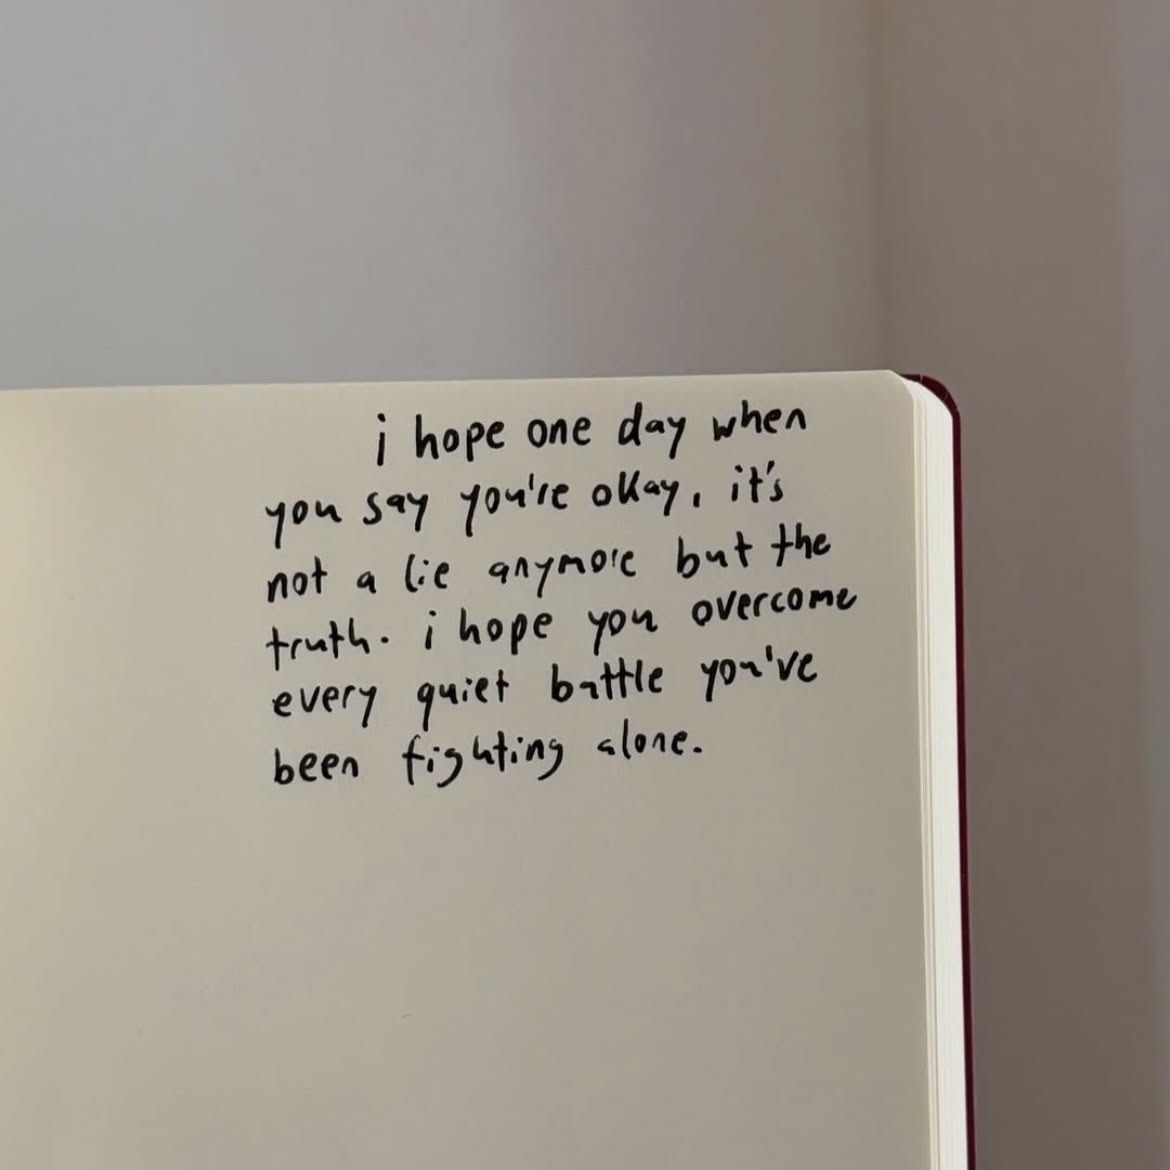 i hope one day when
you say you're okay, it's
not a lie anymore but the
truth. i hope you overcome
every quiet battle you've
been fighting alone.